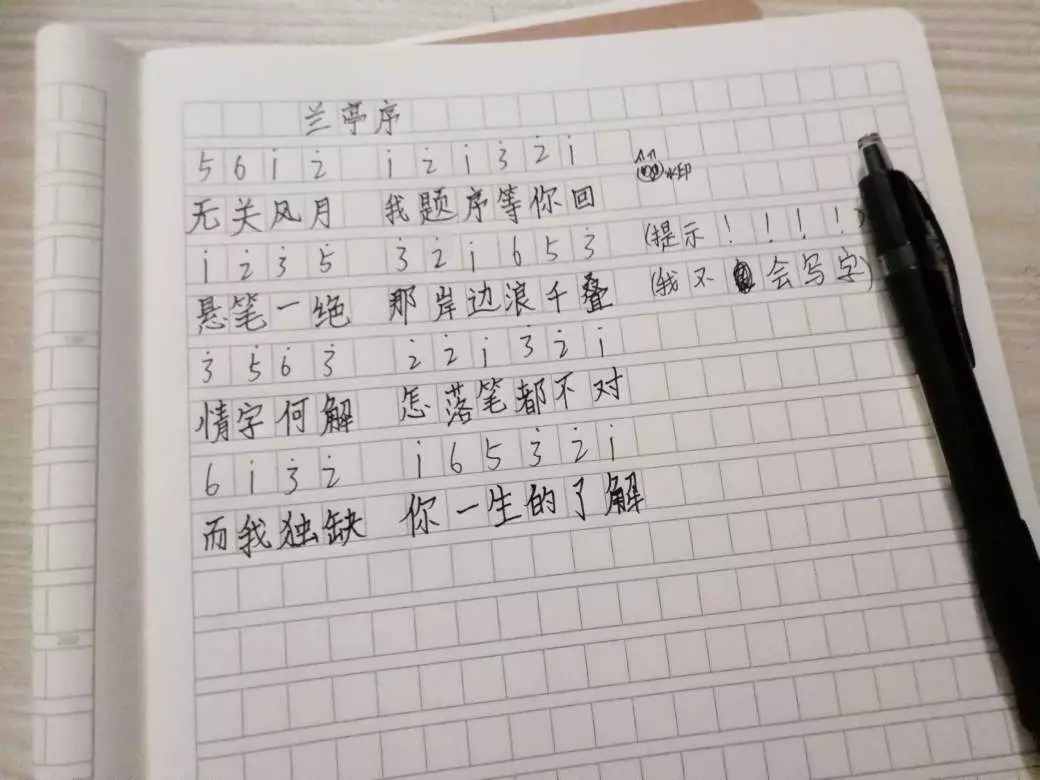 兰亭序
5 6 i 2̇ i 2̇ i 3̇ 2̇ i
水印
无关风月 我题序等你回
i 2̇ 3̇ 5̇ 3̇ 2̇ i 6 5 3̇
(提示!!!!)
悬笔一绝 那岸边浪千叠
(我不会写字)
3̇ 5̇ 6̇ 3̇ 2̇ 2̇ i 3̇ 2̇ i
情字何解 怎落笔都不对
6 i 3̇ 2̇ i 6 5 3̇ 2̇ i
而我独缺 你一生的了解